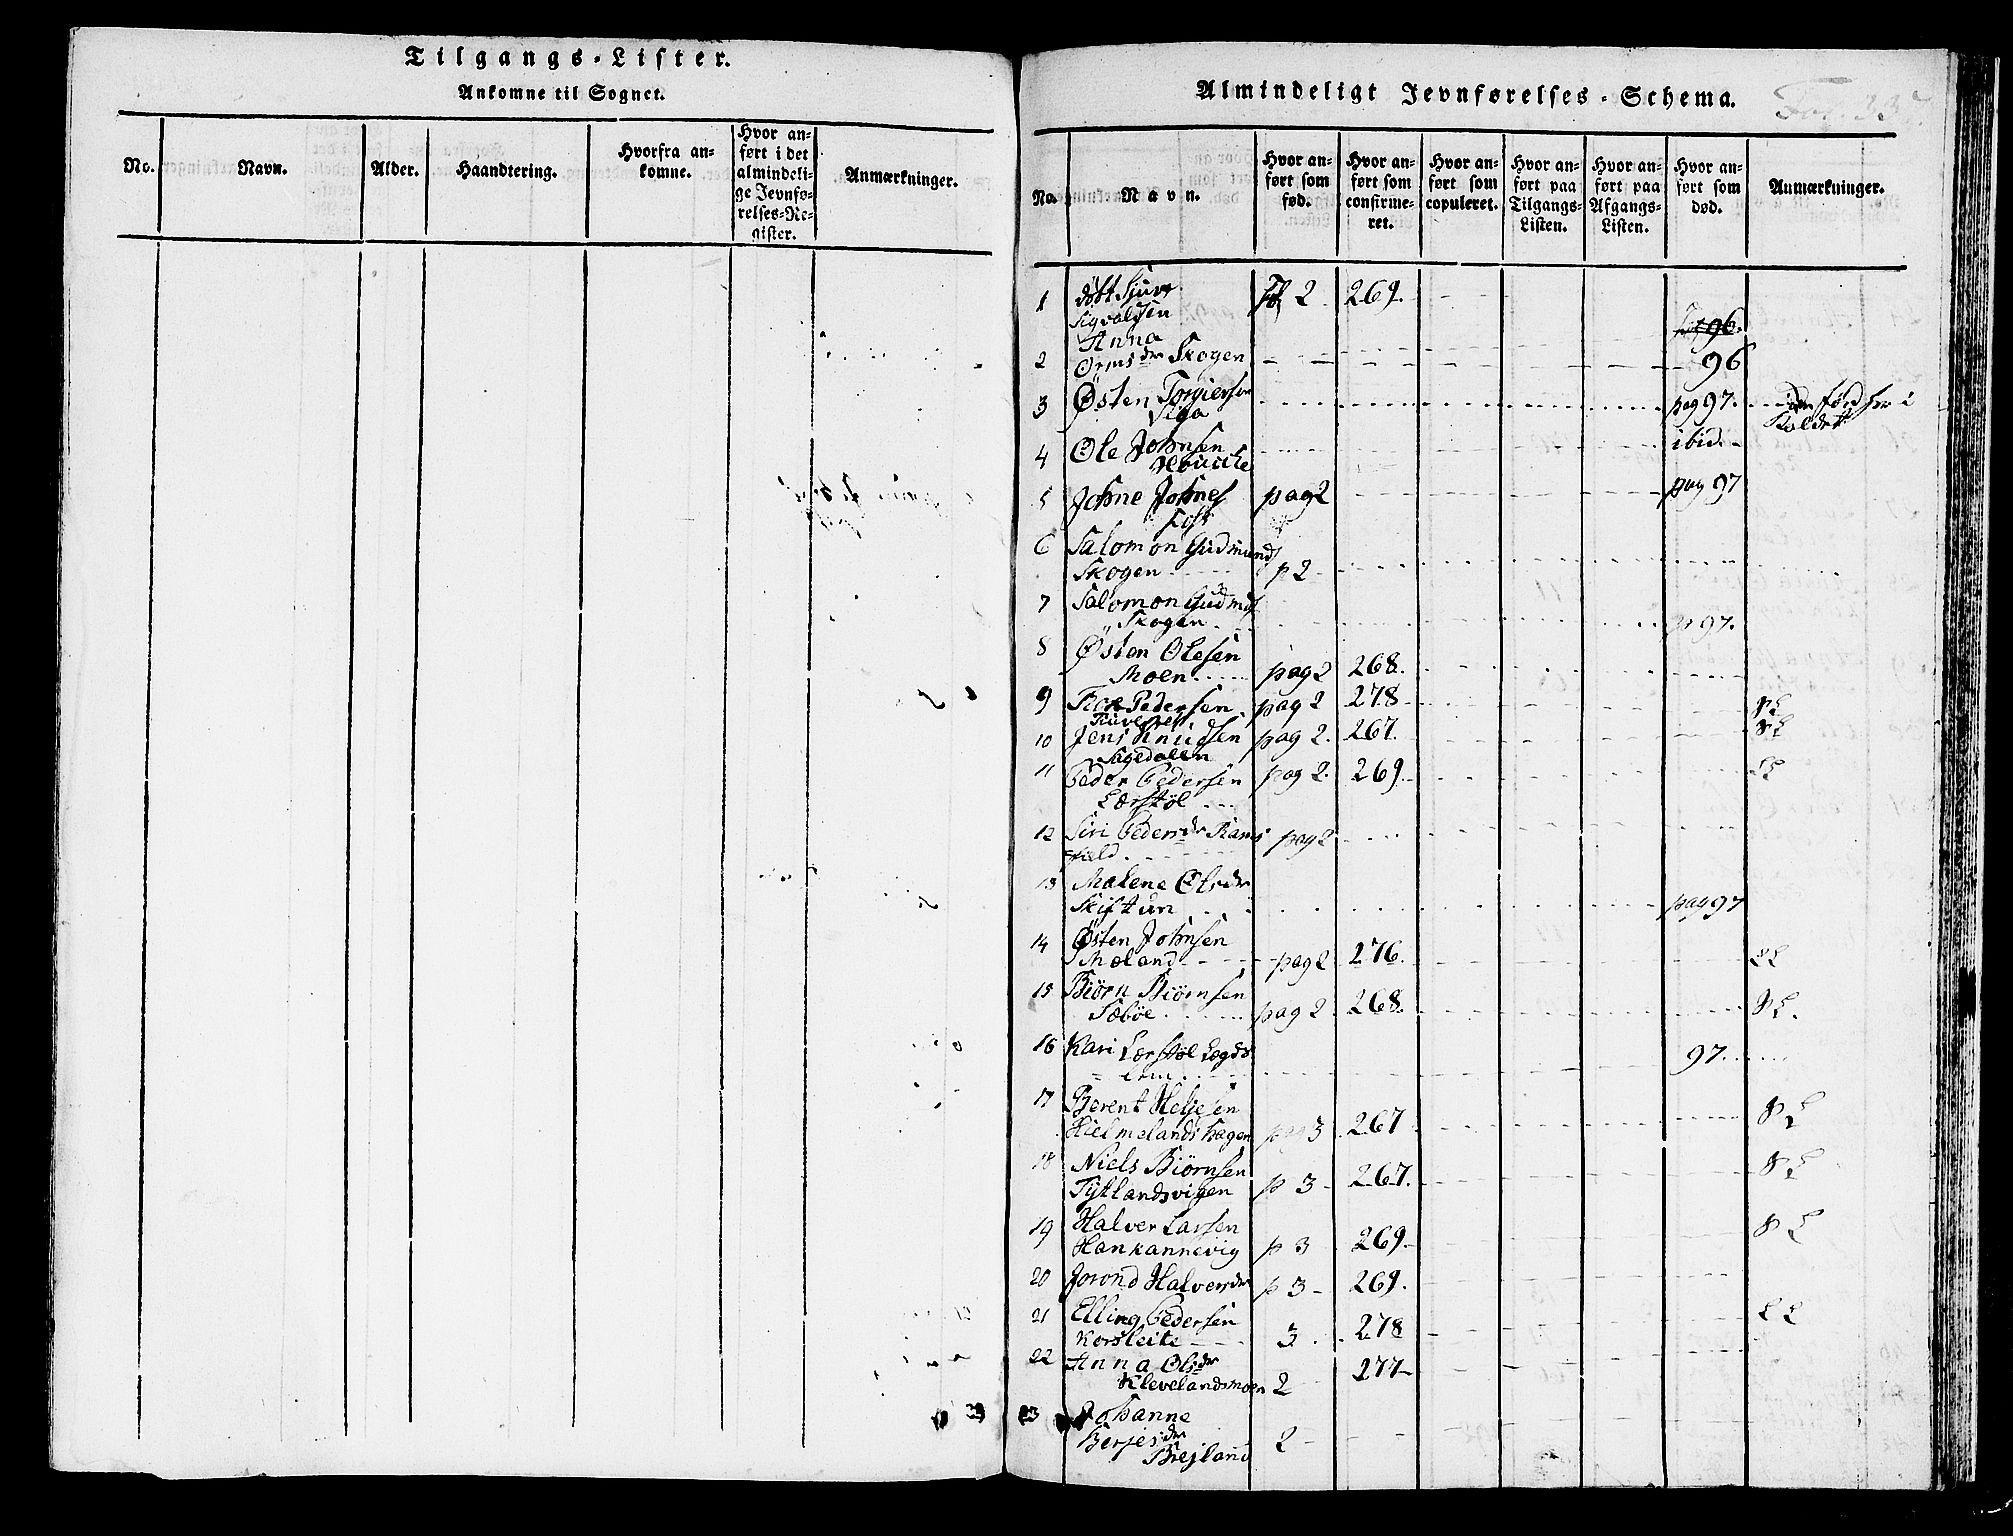 Tilgangs-Lister.
Ankomne til Sognet.
No.
Navn.
Alder.
Haandtering.
Hvorfra an-
komne.
Hvor an-
ført i det
almindeli-
ge Jevnfø-
relses-Re-
gister.
Anmærkninger.
Almindeligt Jevnførelses-Schema.
No.
Navn.
Hvor an-
ført som
fød.
Hvor an-
ført som
confirme-
ret.
Hvor an-
ført som
copuleret.
Hvor an-
ført paa
Tilgangs-
Listen.
Hvor an-
ført paa
Afgangs-
Listen.
Hvor an-
ført som
død.
Anmærkninger.
1 Sjur 2 269.
Sigvaldsen
96.
Anna
2 Orms dr Skogen 96
3 Østen Torgiersen pag 97.
4 Ole Johnsen ibid.
5 Johne Johnes pag 2 pag 97
6 Salomon Gudmunds
Skogen p 2
7 Salomon Gudmds
Skogen 97.
8 Østen Olesen
Moen pag 2 268.
9 Pedersen pag 2 278
10 Jens Knudsen pag 2. 267.
Sagedalen
11 Peder Pedersen pag 2. 269.
Lærstøl
12 Siri Peders dr Rams pag 2
field
13 Malene Ols dr
Skiftun pag 97
14 Østen Johnsen
Mæland pag 2 276.
15 Biörn Biörnsen
Sæböe pag 2 268.
16 Kari Lærstøl Lægds
lem 97.
17 Berent Heljesen
Hielmelandshagen pag 3 267
18 Niels Biörnsen
Tytlandsvigen p 3 267.
19 Halver Larsen
Hankannevig p 3 269
20 Jorond Halvers dr p 3 269.
21 Elling Pedersen
Korsleite 3 278
22 Anna Ols dr 277
Klevelandsmoen 2
23 Johanne
Berjes dr 2
Breiland